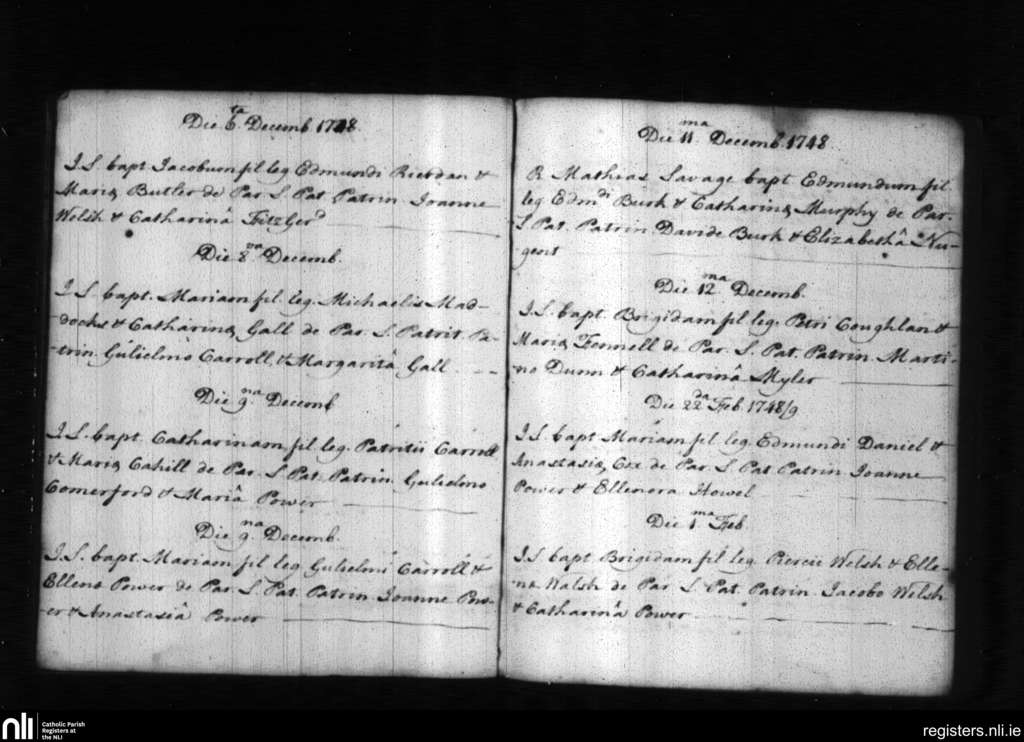 Die 6.ta Decemb 1748.
I S. bapt Jacobum fil leg Edmundi Rierdan &
Mariæ Butler de Par S Pat Patrin Joanne
Welsh & Catharina Fitzger.d
Die 8.va Decemb.
I S. bapt. Mariam fil. leg. Michaelis Mad-
docks & Catharinæ Gall de Par. S. Patrit. Pa-
trin. Gulielmo Carroll, & Margaritâ Gall
Die 9.na Decemb
I S. bapt. Catharinam fil leg. Patritii Carroll
& Mariæ Cahill de Par. S Pat. Patrin. Gulielmo
Comerford & Mariâ Power
Die 9.na Decemb.
I. S. bapt. Mariam fil leg Gulielmi Carroll &
Ellenæ Power de Par. S. Pat. Patrin Joanne Pow-
er & Anastasiâ Power
Die 11.ma Decemb. 1748
R Mathias Savage bapt Edmundum fil
leg Edm.di Burk & Catharinæ Murphy de Par.
S Pat. Patrin Davide Burk & Elizabethâ Nu-
gent
Die 12.ma Decemb.
I. S. bapt. Brigidam fil leg. Petri Coughlan &
Mariæ Fennell de Par. S. Pat. Patrin. Marti-
no Dunn & Catharinâ Myler
Die 22.da Feb. 1748/9
I S. bapt Mariam fil leg. Edmundi Daniel &
Anastasiæ Cox de Par. S Pat Patrin Joanne
Power & Ellenora Howel
Die 1.ma Feb.
I. S bapt Brigidam fil leg. Piercii Welsh & Elle-
næ Walsh de Par S. Pat. Patrin. Jacobo Welsh
& Catharinâ Power
nli Catholic Parish
Registers at
the NLI
registers.nli.ie